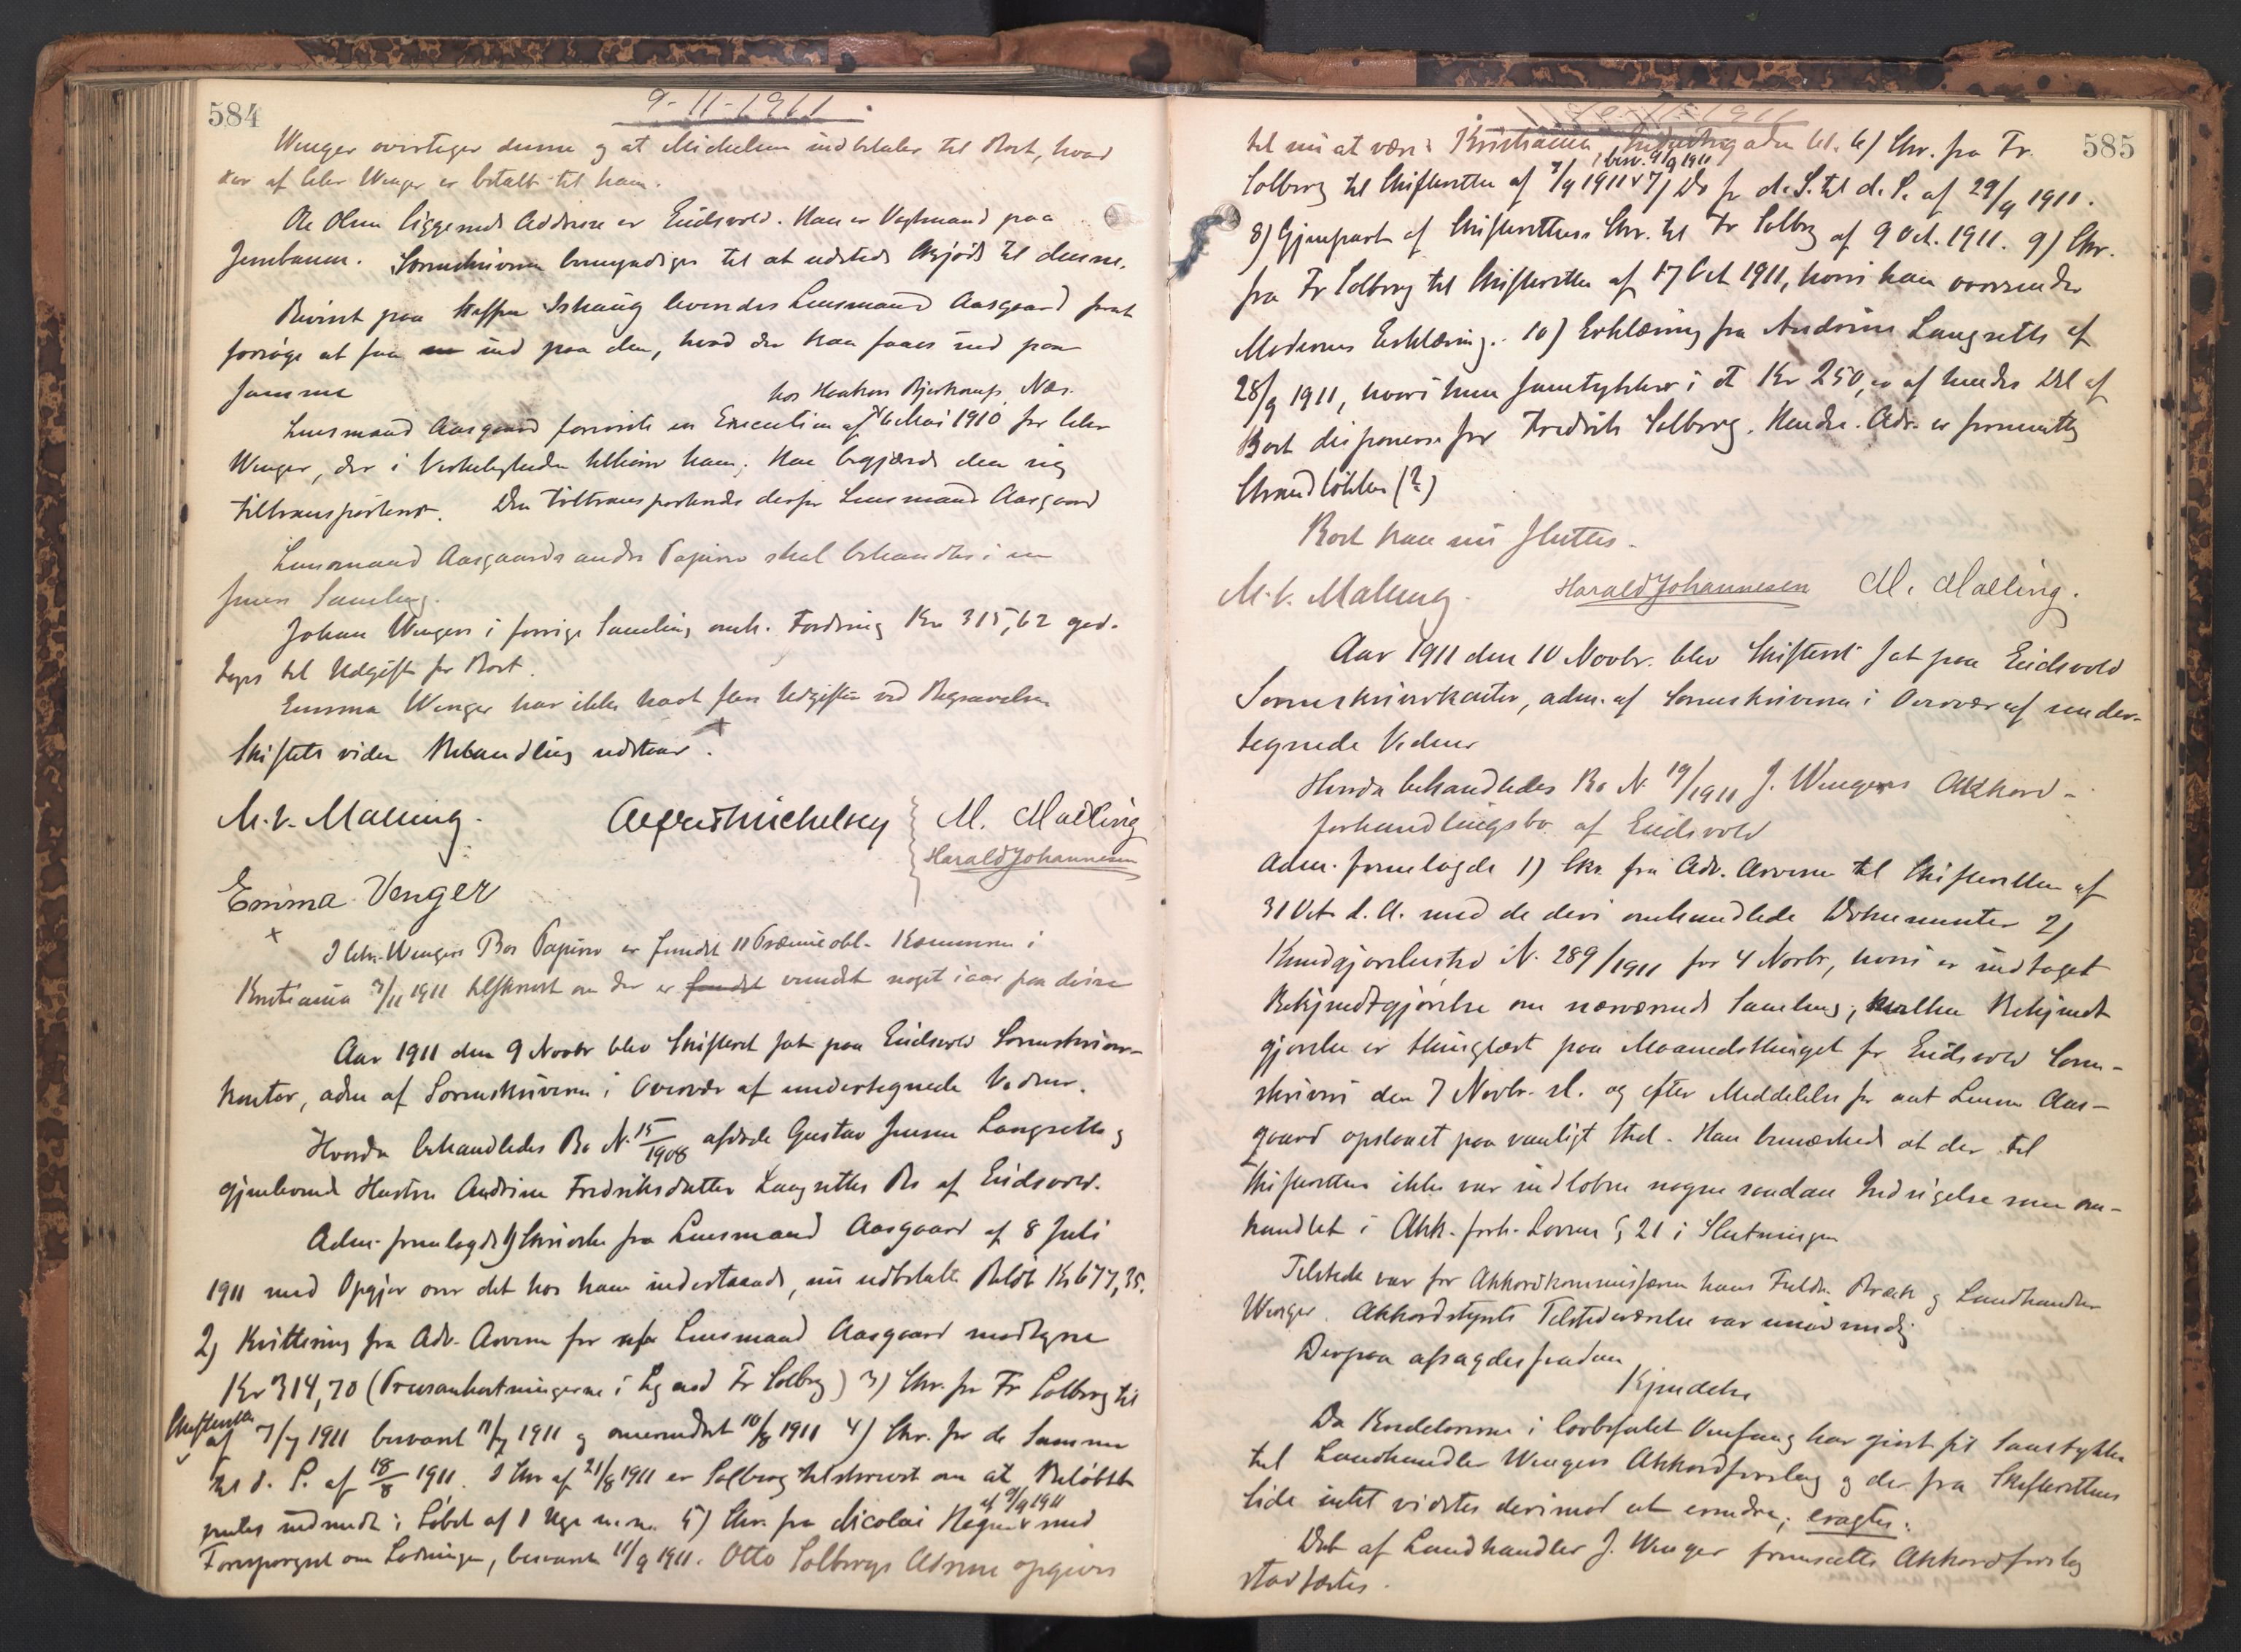 584
9-11-1911
Wenger overtager denne og at Michelsen indbetaler til Boet, hvad
der af Wenger er betalt til ham.
Ole Olsen liggende Addresse er Eidsvold. Han er Vagtmand paa
Jernbanen. Sorenskriveren bemyndiges til at udstede Skjøde til denne.
Beviset paa Steffen Ishaug leveredes Lensmand Aasgaard for at
forsøge at faa ind paa den, hvad der kan faaes ind paa
samme
hos Haakon Bjerknes, Næs.
Lensmand Aasgaard foreviste en Execution af 6 Mai 1910 for
Wenger, der i Virkeligheden tilhører ham. Han begjærede den sig
tiltransporteret. Den tiltransporteredes derfor Lensmand Aasgaard
Lensmand Aasgaards andre Papirer skal behandles i en
senere Samling.
Johan Wengers i forrige Samling omh. Fordring Kr 315,62 god-
tages til Udgift for Boet.
Emma Wenger har ikke havt flere Udgifter ved Begravelsen
Skiftets videre Behandling udstaar. x
M. V. Malling. Alfred Michelsen M. Malling
Harald Johannesen
Emma Venger
x I Wengers Bos Papirer er fundet 11 Præmieobl. Kommunen i
Kristiania 3/11 1911 tilskrevet om der er fundet vundet noget iaar paa disse
Aar 1911 den 9 Novbr blev Skifteret sat paa Eidsvold Sorenskriver-
kontor, adm af Sorenskriveren i Overvær af undertegnede Vidner.
Hvorda behandledes Bo N. 15/1908 afdøde Gustav Jensen Langseth og
gjenlevende Hustru Andrine Fredriksdatter Langseths Bo af Eidsvold.
Adm. fremlagde 1) Skrivelse fra Lensmand Aasgaard af 8 Juli
1911 med Opgjør over det hos ham indestaaende, nu udbetalte Beløb Kr 677,35.
2) Kvittering fra Adv. Arvesen for Lensmand Aasgaard modtagne
Kr 314,70 (Prosesomkostningerne i Sag mod Fr Solberg) 3) Skr. fra Fr Solberg til
Skifteretten af 7/7 1911 besvaret 11/7 1911 og omsendt 10/8 1911 4) Skr. fra de Samme
til d. S. af 18/8 1911. I Skr af 21/8 1911 er Solberg tilskrevet om at Beløbet
ventes indsendt i Løbet af 1 Uge m.m. 5) Skr. fra Nicolai af 9/9 1911 med
Forespørgsel om Lodningen, besvaret 11/9 1911. Otto Solbergs Adresse opgives
585
1911
til nu at være Kristiania, 61. 6) Skr. fra Fr.
Solberg til Skifteretten af 7/9 1911 besv. 9/9 1911 7) Do fr d. S. til d. S. af 29/9 1911.
8) Gjenpart af Skifterettens Skr. til Fr Solberg af 9 Oct. 1911. 9) Skr.
fra Fr Solberg til Skifteretten af 17 Oct 1911, hvori han oversender
Moderens Erklæring. 10) Erklæring fra Andrine Langseth af
28/9 1911, hvori hun samtykker i at Kr 250,00 af hendes Del af
Boet disponeres for Fredrik Solberg. Hendes Adr. er formentlig
Strandløkken (?)
Boet kan nu sluttes.
M. V. Malling. Harald Johannesen M. Malling.
Aar 1911 den 10 Novbr. blev Skifteret sat paa Eidsvold
Sorenskriverkontor, adm. af Sorenskriveren i Overvær af under-
tegnede Vidner
Hvorda behandledes Bo N. 19/1911 J. Wengers Akkord-
forhandlingsbo af Eidsvold
Adm. fremlagde 1) Skr. fra Adv. Arvesen til Skifteretten af
31 Oct d. A. med de deri omhandlede Dokumenter 2)
Kundgjørelsestid N. 289/1911 for 4 Novbr, hvori er indtaget
Bekjendtgjørelse om nærværende Samling, hvilken Bekjendt-
gjørelse er thinglæst paa Maanedsthinget for Eidsvold Soren-
skriveri den 7 Novbr. sl. og efter Meddelelse fra const Lensm Aas-
gaard opslaaet paa vanligt Sted. Han bemærkede at der til
Skifteretten ikke var indløbne nogen saadan Indsigelse som om-
handlet i Akk. forh. Lovens § 21 i Slutningen
Tilstede var for Akkordkommissæren hans Fuldm. Bræk og Landhandler
Wenger. Akkordstyrets Tilstedeværelse var unødvendig
Derpaa afsagdes saadan
Kjendelse
Da Kreditorerne i lovbefalet Omfang har givet sit Samtykke
til Landhandler Wengers Akkordforslag og der fra Skifterettens
Side intet vidstes derimod at erindre, eragtes:
Det af Landhandler J. Wenger fremsatte Akkordforslag
stadfæstes.